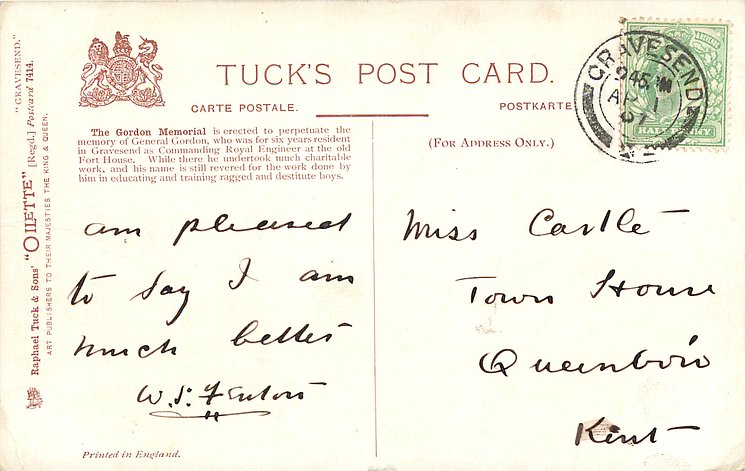 TUCK'S POST CARD.
CARTE POSTALE.
POSTKARTE
(FOR ADDRESS ONLY.)
The Gordon Memorial is erected to perpetuate the
memory of General Gordon, who was for six years resident
in Gravesend as Commanding Royal Engineer at the old
Fort House. While there he undertook much charitable
work, and his name is still revered for the work done by
him in educating and training ragged and destitute boys.
am pleased
to say I am
much better
W.S. Fenton
Miss Castle
Town House
Queenboro
Kent
Printed in England.
Raphael Tuck & Sons' "OILETTE" [Regd.] Postcard 7414.
"GRAVESEND."
ART PUBLISHERS TO THEIR MAJESTIES THE KING & QUEEN.
GRAVESEND
945
AP 1
07
HALF PENNY